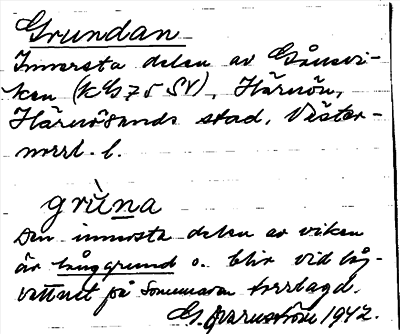 Grundan
Innersta delen av Gånsvi-
ken (kbl 75 SV), Härnön,
Härnösands stad, Väster-
norrl. l.
grùna
Den innersta delen av viken
är långgrund o. blir vid låg-
vattnet på sommaren torrlagd.
G. 1942.